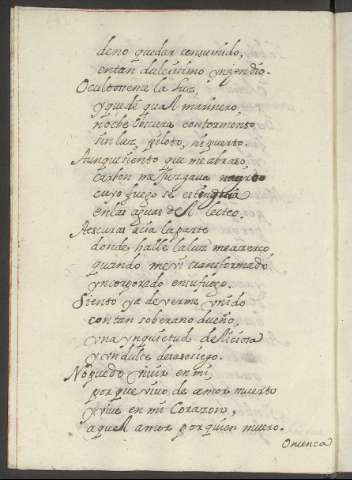 deno quedar consumido,
entan dulcissimo ynzendio.
Ocultoseme la luz,
y quedè qual marinero
noche obscura con tormento
sin luz, piloto, ni puerto.
Aunque siento que me abraso,
carbon me juzgava
cuyo fuego se
en las aguas del leteo.
Aescuras acia la parte
donde halle la luz me acerco
quando me vi transformado
yncorporado en su fuego.
Siento ya de verme vnido
con tan soberano dueño,
vna ynquietud deliciosa
y vn dulce desasosiego.
No puedo viuir en mi,
porque viuo de amor muerto
y viue en mi Corazon,
aquel amor por quien muero.
O nunca